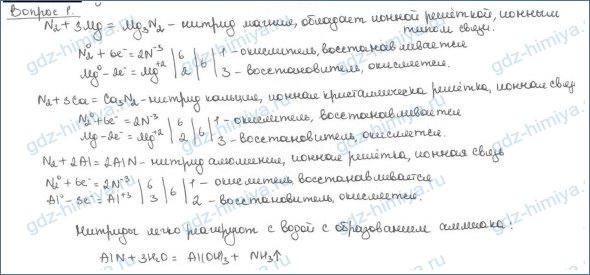 Вопрос 1.
N₂ + 3Mg = Mg₃N₂ - нитрид магния, обладает ионной решёткой, ионным
типом связи.
N₂⁰ + 6e⁻ = 2N⁻³ | 6 | 6 | 1 - окислитель, восстанавливается
Mg⁰ - 2e⁻ = Mg⁺² | 2 | 3 - восстановитель, окисляется.
N₂ + 3Ca = Ca₃N₂ - нитрид кальция, ионная кристаллическая решётка, ионная связь
N₂⁰ + 6e⁻ = 2N⁻³ | 6 | 6 | 1 - окислитель, восстанавливается
Mg - 2e⁻ = Mg⁺² | 2 | 3 - восстановитель, окисляется.
N₂ + 2Al = 2AlN - нитрид алюминия, ионная решётка, ионная связь
N₂⁰ + 6e⁻ = 2N⁻³ | 6 | 6 | 1 - окислитель, восстанавливается
Al⁰ - 3e⁻ = Al⁺³ | 3 | 2 - восстановитель, окисляется.
Нитриды легко реагируют с водой с образованием аммиака:
AlN + 3H₂O = Al(OH)₃ + NH₃↑
gdz-himiya.ru